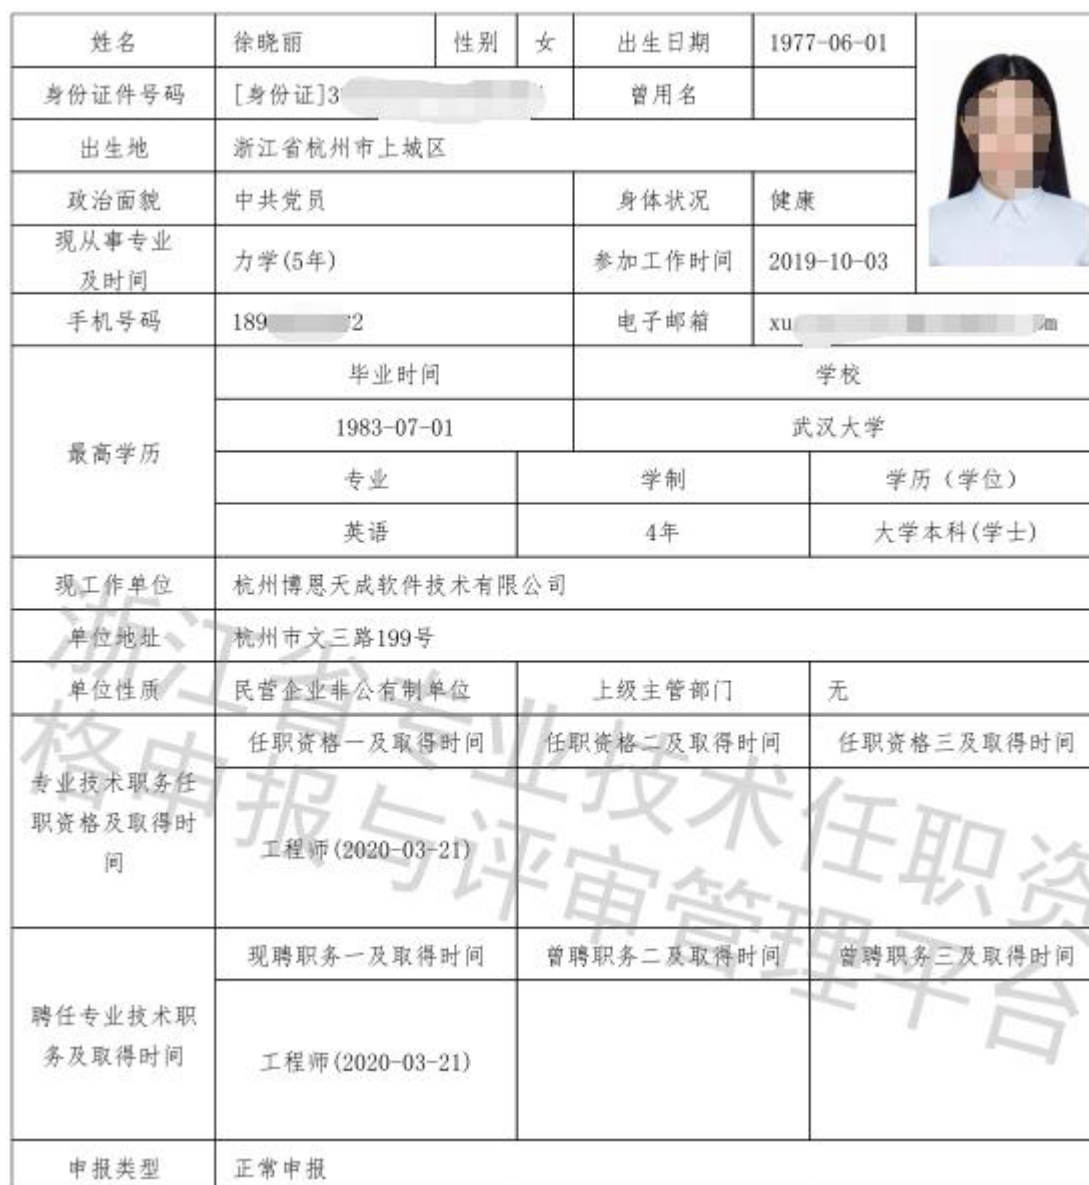 姓名 徐晓丽 性别 女 出生日期 1977-06-01
身份证件号码 [身份证]3 曾用名
出生地 浙江省杭州市上城区
政治面貌 中共党员 身体状况 健康
现从事专业
及时间 力学(5年) 参加工作时间 2019-10-03
手机号码 189 2 电子邮箱 xu m
最高学历 毕业时间 学校
1983-07-01 武汉大学
专业 学制 学历（学位）
英语 4年 大学本科(学士)
现工作单位 杭州博恩天成软件技术有限公司
单位地址 杭州市文三路199号
单位性质 民营企业非公有制单位 上级主管部门 无
专业技术职务任
职资格及取得时
间
任职资格一及取得时间 任职资格二及取得时间 任职资格三及取得时间
工程师(2020-03-21)
聘任专业技术职
务及取得时间
现聘职务一及取得时间 曾聘职务二及取得时间 曾聘职务三及取得时间
工程师(2020-03-21)
申报类型 正常申报
浙江省专业技术任职资
格申报与评审管理平台